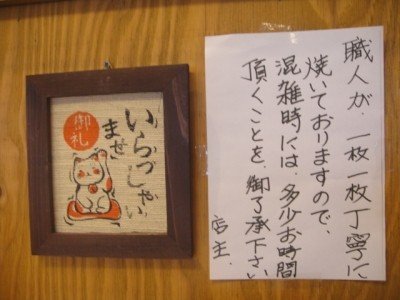 いらっしゃい
ませ
御礼
職人が、一枚一枚丁寧に
焼いておりますので、
混雑時には、多少お時間
頂くことを、御了承下さい
店主.